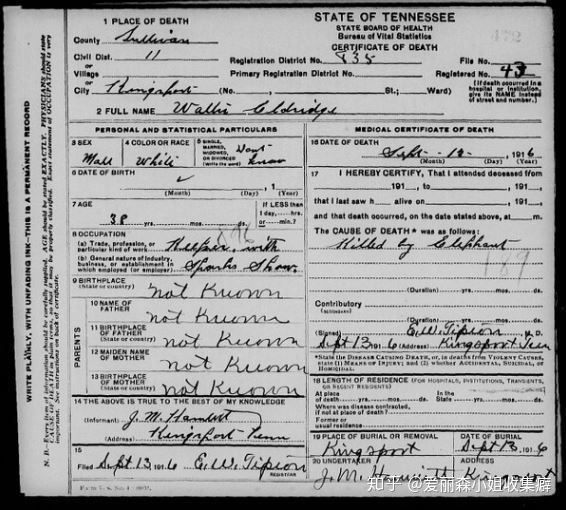 1 PLACE OF DEATH
STATE OF TENNESSEE
STATE BOARD OF HEALTH
Bureau of Vital Statistics
CERTIFICATE OF DEATH
472
County Sullivan
Civil Dist. 11
or
Village
or
City Kingsport (No., St.; Ward)
Registration District No. 835 File No.
Primary Registration District No. Registered No. 43
(If death occurred in a hospital or institution, give its NAME instead of street and number.)
2 FULL NAME Walter Eldridge
PERSONAL AND STATISTICAL PARTICULARS
3 SEX Male
4 COLOR OR RACE White
5 SINGLE, MARRIED, WIDOWED, OR DIVORCED (Write the word) Dont Know
6 DATE OF BIRTH
(Month) (Day) , 1 (Year)
7 AGE 38 yrs. mos. ds.
If LESS than 1 day, hrs. or min.?
8 OCCUPATION
(a) Trade, profession, or particular kind of work Keeper with
(b) General nature of industry, business, or establishment in which employed (or employer) Sparks Show
9 BIRTHPLACE (State or country) Not Known
PARENTS
10 NAME OF FATHER Not Known
11 BIRTHPLACE OF FATHER (State or country) Not Known
12 MAIDEN NAME OF MOTHER Not Known
13 BIRTHPLACE OF MOTHER (State or country) Not Known
14 THE ABOVE IS TRUE TO THE BEST OF MY KNOWLEDGE
(Informant) J. M.
(Address) Kingsport Tenn
15
Filed Sept 13, 1916 E. W. Tipton
REGISTRAR
MEDICAL CERTIFICATE OF DEATH
16 DATE OF DEATH
Sept - 12 - , 1916
(Month) (Day) (Year)
17 I HEREBY CERTIFY, That I attended deceased from
, 191 , to , 191 ,
that I last saw h alive on , 191 ,
and that death occurred, on the date stated above, at m.
The CAUSE OF DEATH * was as follows:
Killed by Elephant
189
(Duration) yrs. mos. ds.
Contributory
(Secondary)
(Duration) yrs. mos. ds.
(Signed) E. W. Tipton M. D.
Sept 13, 1916 (Address) Kingsport Tenn
*State the DISEASE CAUSING DEATH, or, in deaths from VIOLENT CAUSES, state (1) MEANS OF INJURY; and (2) whether ACCIDENTAL, SUICIDAL, or HOMICIDAL.
18 LENGTH OF RESIDENCE (FOR HOSPITALS, INSTITUTIONS, TRANSIENTS, OR RECENT RESIDENTS)
At place of death yrs. mos. ds. In the State yrs. mos. ds.
Where was disease contracted, if not at place of death?
Former or usual residence
19 PLACE OF BURIAL OR REMOVAL Kingsport
DATE OF BURIAL Sept 13, 1916
20 UNDERTAKER J. M.
ADDRESS Kingsport
WRITE PLAINLY, WITH UNFADING INK—THIS IS A PERMANENT RECORD
N. B.—Every item of information should be carefully supplied. AGE should be stated EXACTLY. PHYSICIANS should state CAUSE OF DEATH in plain terms, so that it may be properly classified. Exact statement of OCCUPATION is very important. See instructions on back of certificate.
知乎 @爱丽森小姐收集癖